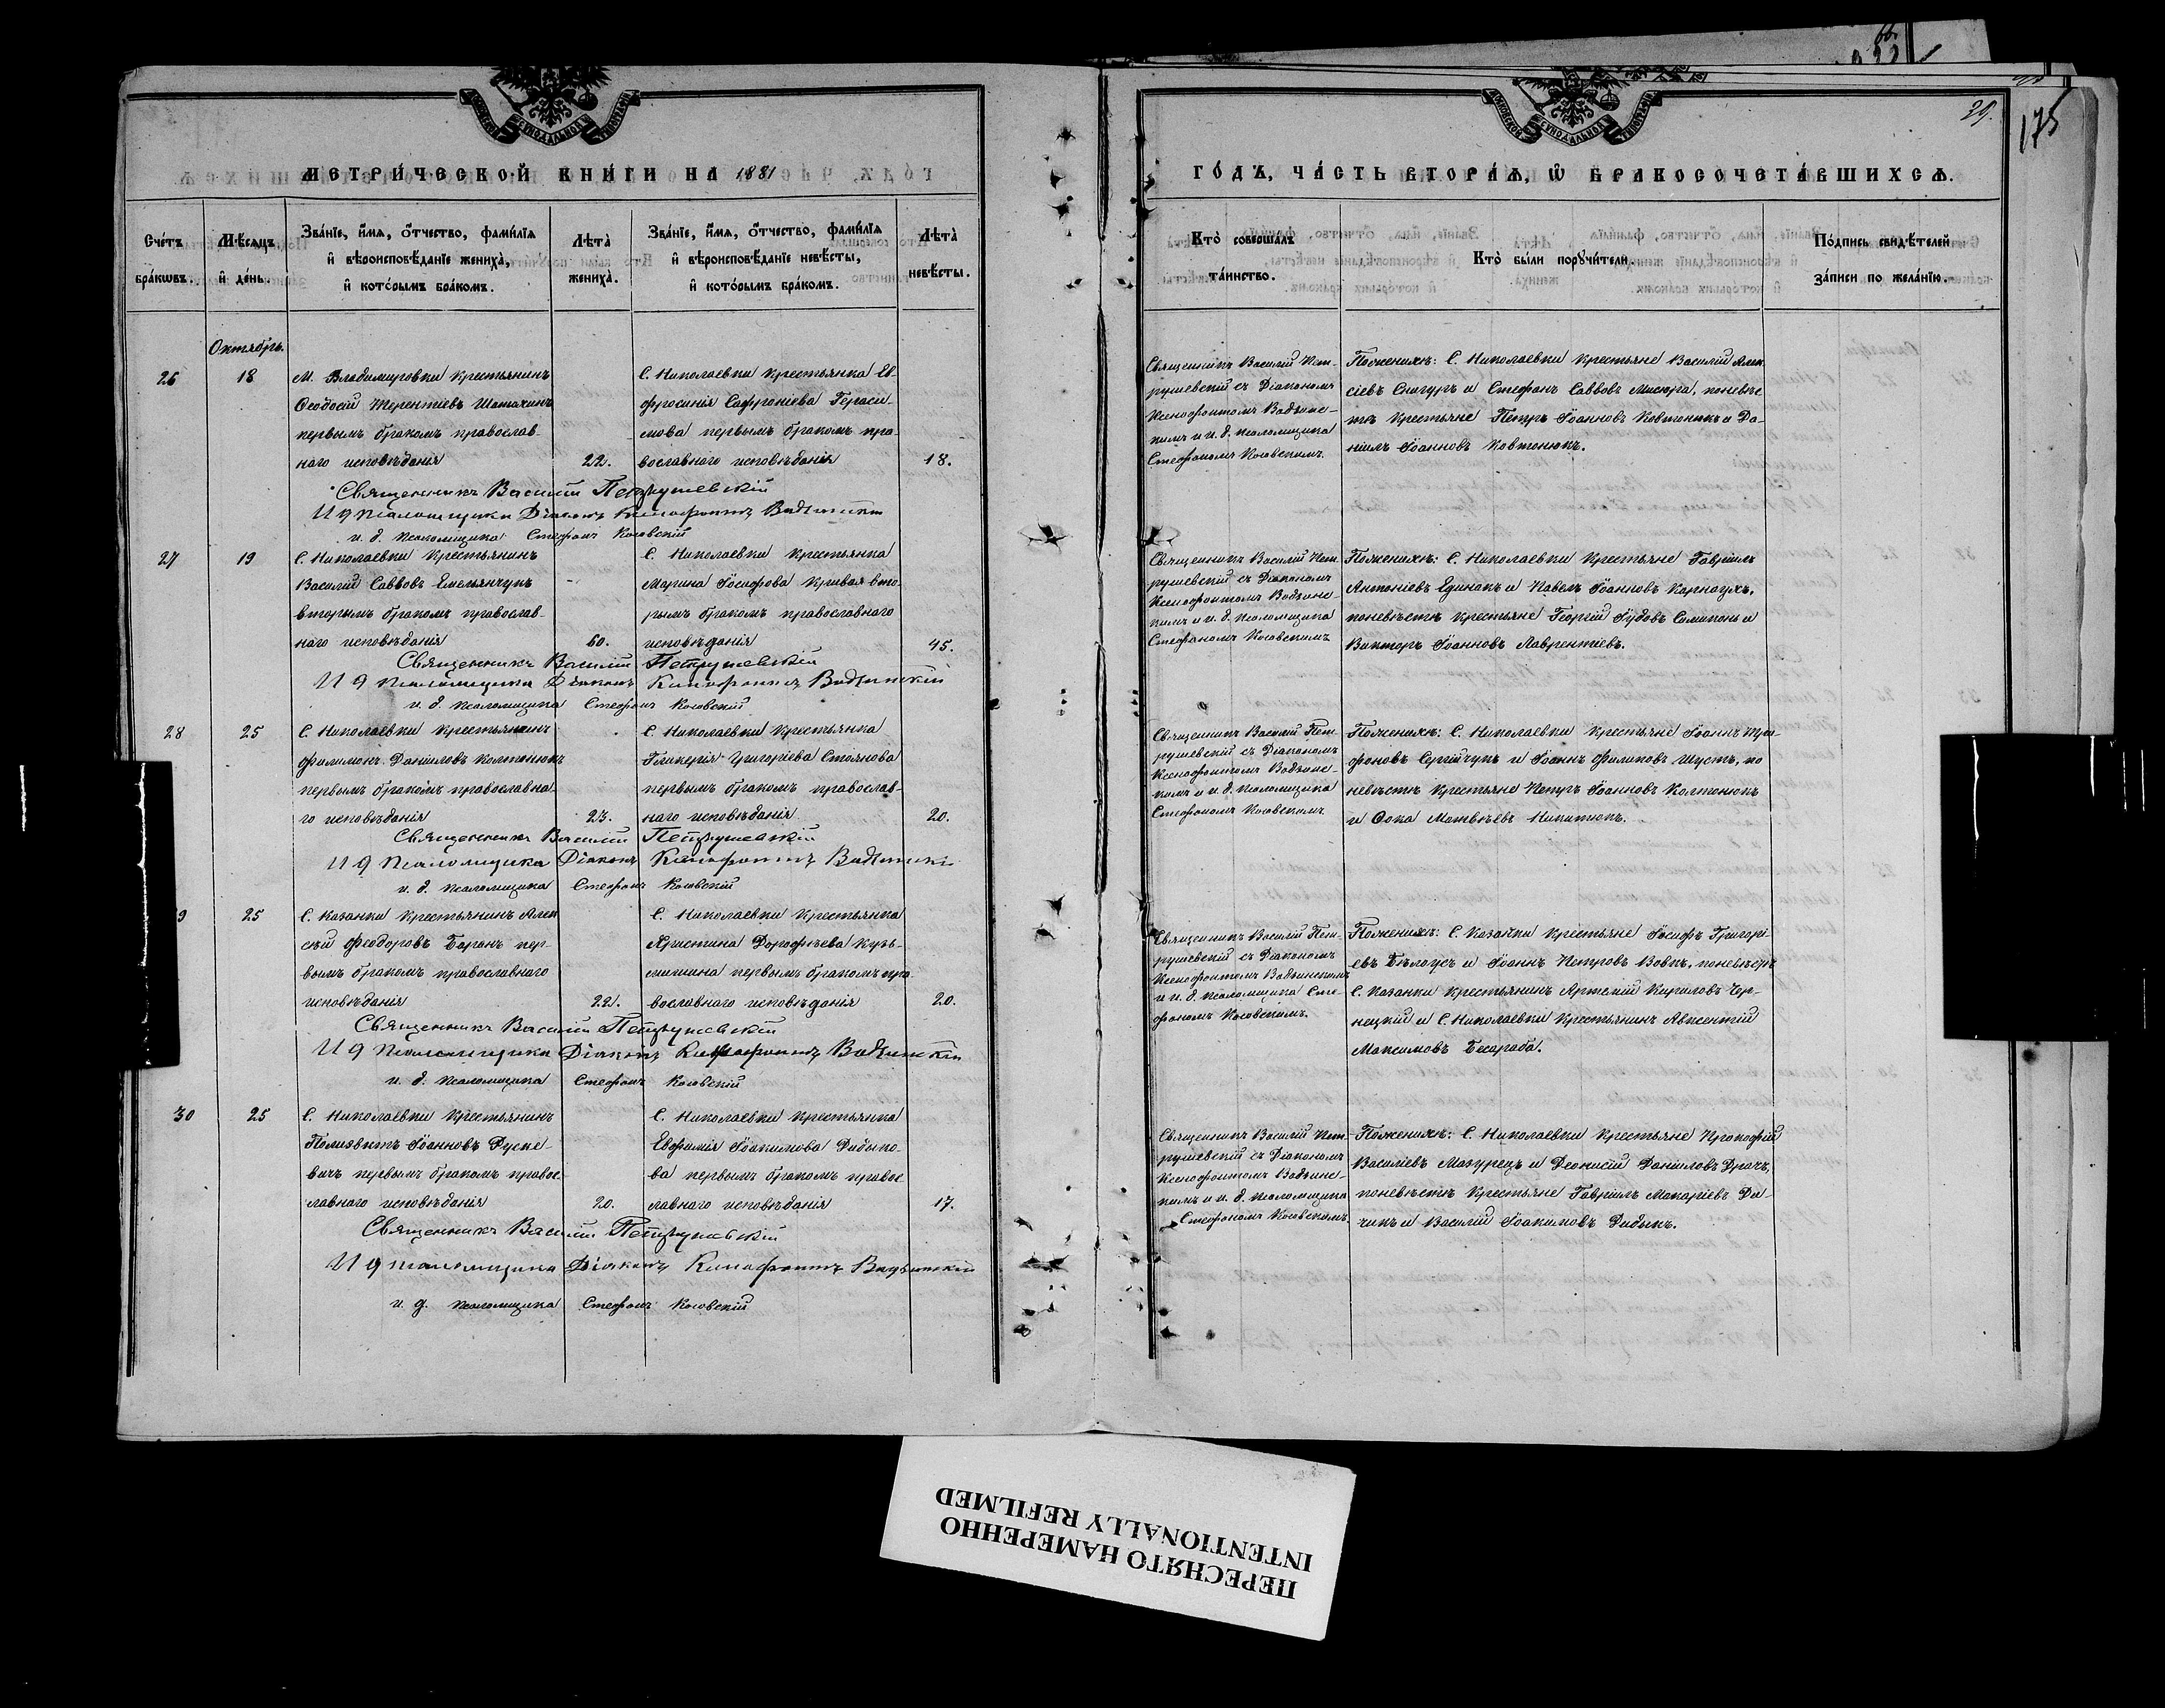 МЕТРИ́ЧЕСКОЙ КНИ́ГИ НА 1881
Сче́тъ бра́кѡвъ.
Мѣ́сяцъ и҆ де́нь.
Зва́нїе, и҆́мѧ, ѻ҆́тчество, фами́лїѧ и҆ вѣроисповѣ́данїе жениха̀, и҆ кото́рымъ бра́комъ.
Лѣ́та̀ жениха̀.
Зва́нїе, и҆́мѧ, ѻ҆́тчество, фами́лїѧ и҆ вѣроисповѣ́данїе невѣ́сты, и҆ кото́рымъ бра́комъ.
Лѣ́та̀ невѣ́сты.
Октябрь.
26
18
М. Владимировки крестьянинъ
Ѳеодосій Терентіевъ Шатохинъ
первымъ бракомъ православ-
наго исповѣданія
22.
С. Николаевки крестьянка Ев-
фросинія Сафроніева Гераси-
мова первымъ бракомъ пра-
вославнаго исповѣданія
18.
Священникъ Василій Петрушевскій
И д псаломщика Діаконъ Ксенофонтъ
и. д. псаломщика Стефанъ Косовскій
27
19
С. Николаевки крестьянинъ
Василій Саввовъ Емельянчукъ
вторымъ бракомъ православ-
наго исповѣданія
60.
С. Николаевки крестьянка
Марина Іосифова Кривая вто-
рымъ бракомъ православнаго
исповѣданія
45.
Священникъ Василій Петрушевскій
И д псаломщика Діаконъ Ксенофонтъ
и. д. псаломщика Стефанъ Косовскій
28
25
С. Николаевки крестьянинъ
Филимонъ Даниловъ Колтонюкъ
первымъ бракомъ православна-
го исповѣданія
23.
С. Николаевки крестьянка
Гликерія Григоріева Стоянова
первымъ бракомъ православ-
наго исповѣданія
20.
Священникъ Василій Петрушевскій
И д псаломщика Діаконъ Ксенофонтъ
и. д. псаломщика Стефанъ Косовскій
9
25
С. Казанки крестьянинъ Алек
сѣй Феодоровъ Баранъ пер-
вымъ бракомъ православнаго
исповѣданія
22.
С. Николаевки крестьянка
Христина Дорофѣева Кузь-
мишина первымъ бракомъ пра-
вославнаго исповѣданія
20.
Священникъ Василій Петрушевскій
И д псаломщика Діаконъ Ксенофонтъ
и. д. псаломщика Стефанъ Косовскій
30
25
С. Николаевки крестьянинъ
Полиевктъ Іоанновъ Дуске-
вичъ первымъ бракомъ правос-
лавнаго исповѣданія
20.
С. Николаевки крестьянка
Евфимія Іоакимова Дидыко-
ва первымъ бракомъ правос
лавнаго исповѣданія
17.
Священникъ Василій Петрушевскій
И д псаломщика Діаконъ Ксенофонтъ
и. д. псаломщика Стефанъ Косовскій
29.
175
ГО́ДЪ, ЧА́СТЬ ВТОРА́Ѧ, Ѽ БРАКОСОЧЕТА́ВШИХСѦ.
Кто̀ соверша́лъ та́инство.
Кто̀ бы́ли порꙋчи́тели.
По́дпись свидѣ́телей за́писи по жела́нїю.
Священникъ Василій Пет-
рушевскій съ Діакономъ
и и. д. псаломщика
Стефаномъ Косовскимъ.
Поженихѣ: С. Николаевки крестьяне Василій Алек
сіевъ Снигуръ и Стефанъ Саввовъ Мисюра, поневѣс
тѣ крестьяне Петръ Іоанновъ Ковтонюкъ и Да-
ніилъ Іоанновъ Ковтонюкъ.
Священникъ Василій Пет-
рушевскій съ Діакономъ
и и. д. псаломщика
Стефаномъ Косовскимъ
Поженихѣ: С. Николаевки крестьяне Гавріилъ
Антоніевъ Единакъ и Павелъ Іоанновъ Карнаухъ,
поневѣстѣ крестьяне Георгій Іудовъ и
Викторъ Іоанновъ Лаврентіевъ.
Священникъ Василій Пет-
рушевскій съ Діакономъ
и и. д. псаломщика
Стефаномъ Косовскимъ.
Поженихѣ: С. Николаевки крестьяне Іоаннъ Три-
фоновъ Сергійчукъ и Іоаннъ Филиповъ Шустъ, по
невѣстѣ крестьяне Петръ Іоанновъ Колтонюкъ
и Ѳома Матвѣевъ Никитюкъ.
Священникъ Василій Пет-
рушевскій съ Діакономъ
и и. д. псаломщика Сте-
фаномъ Косовскимъ.
Поженихѣ: С. Казанки крестьяне Іосифъ Григорі-
евъ Бѣлоусъ и Іоаннъ Петровъ Вовкъ, поневѣстѣ
С. Казанки крестьянинъ Артемій Кириловъ Чер-
нецкій и С. Николаевки крестьянинъ Авксентій
Максимовъ Бесараба.
Священникъ Василій Пет-
рушевскій съ Діакономъ
и и. д. псаломщика
Стефаномъ Косовскимъ.
Поженихѣ: С. Николаевки крестьяне Прокофій
Василіевъ Мазурецъ и Деонисій Даниловъ Драчъ,
поневѣстѣ крестьяне Гавріилъ Макаріевъ Ди-
чикъ и Василій Іоакимовъ Дидыкъ.
ПЕРЕСНЯТО НАМЕРЕННО
INTENTIONALLY REFILMED